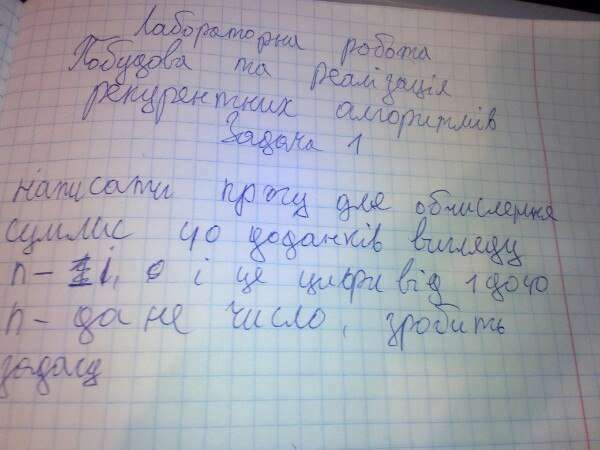 Лабораторна робота
Побудова та реалізація
рекурентних алгоритмів
Задача 1
написати прогу для обчислення
сумлис 40 доданків вигляду
n - і, і це цифри від 1 до 40
n - дане число, зробить
задачу